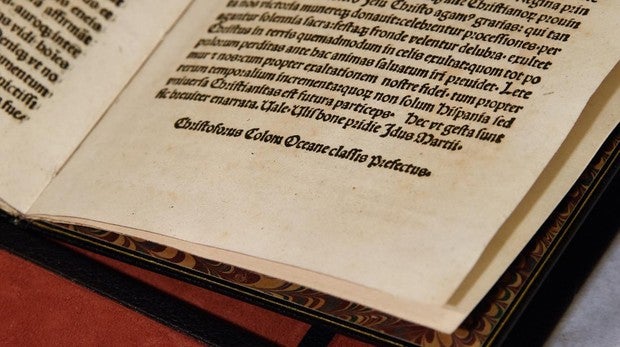 mentum
pictissi
Regina prin
Christianoꝝ prouin
Jesu Christo agamꝰ gratias: qui tan
ta nos victoria munereqꝫ donauit: celebrentur processiones: per
aguntur solennia sacra: festaqꝫ fronde velentur delubra. exultet
Christus in terris quemadmodum in celis exultat: quom tot po
pulorum perditas ante hac animas saluatum iri preuidet. Lete
mur ⁊ nos: cum propter exaltationem nostre fidei. tum propter
rerum temporalium incrementa: quorum non solum Hispania sed
vniuersa Christianitas est futura particeps. Hec vt gesta sunt
sic breuiter enarrata. Uale. Ulisbone pridie Idus Martii.
Christoforus Colom Oceane classis Prefectus.